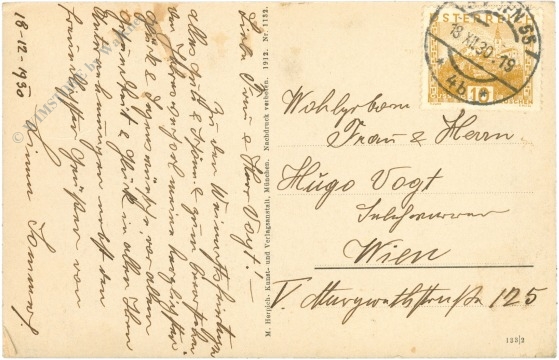 18-12-1930
Liebe Frau & Herr Vogt! –
Zu den Weihnachtsfeiertagen
alles Gute & Schöne & zum bevorsteh.
den Jahreswechsel meine herzlichsten
Glück & Segenswünsche vor allem
Gesundheit & Glück in allen Ihren
Unternehmungen nebst den
freundlichsten Grüßen von
M. Herpich, Kunst- und Verlagsanstalt, München. Nachdruck verboten. 1912. Nr. 1132.
ÖSTERREICH
16
GROSCHEN
WIEN 55
18.XII.30.-19
* 4b *
Wohlgeboren
Frau & Herrn
Hugo Vogt
Wien
V. Margarethstraße 125
123/2
© WIMSTAD by W.